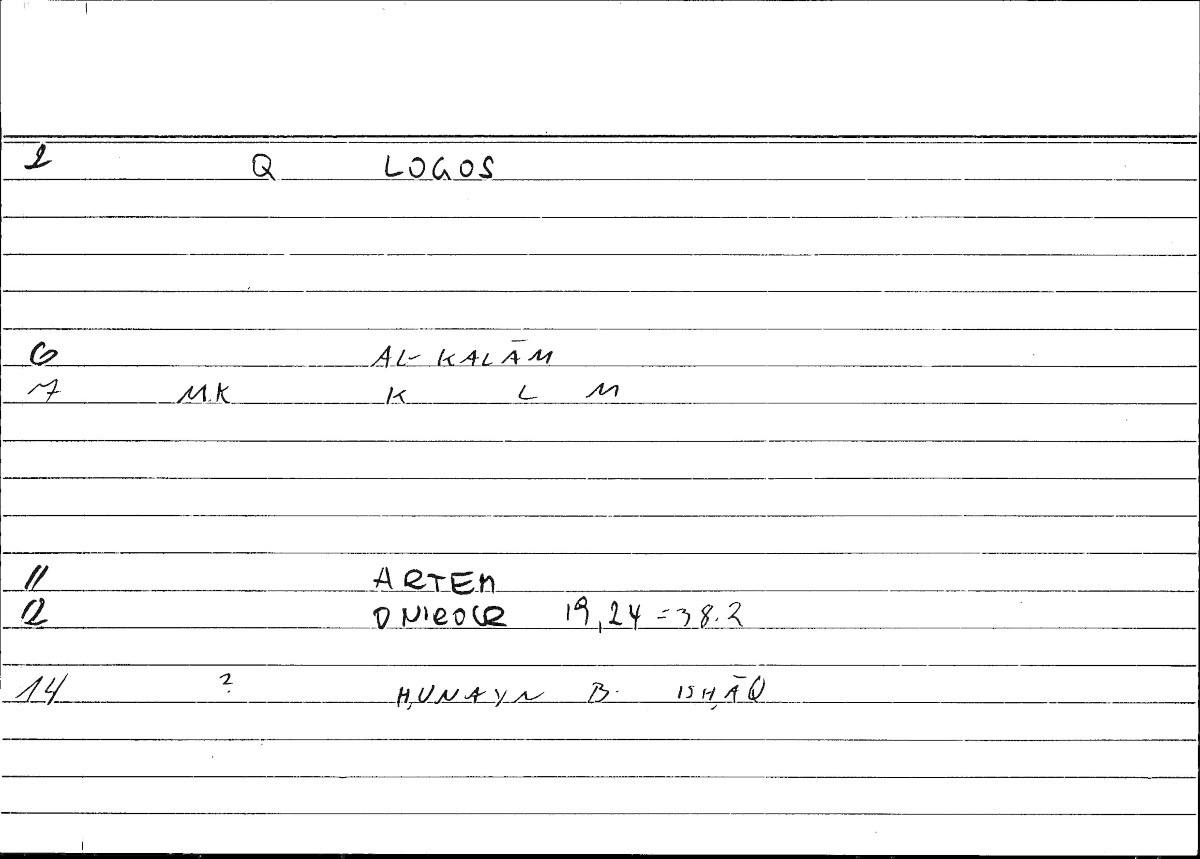 1 Q LOGOS
6 AL-KALĀM
7 MK K L M
11 ARTEM
12 ONIROCR 19,24 = 38.2
14 ? ḤUNAYN B. ISḤĀQ